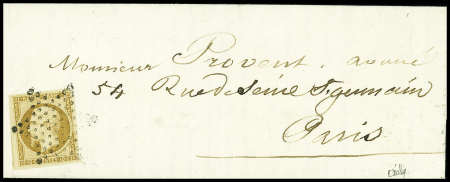 Monsieur Provent, avoué
54 Rue de Seine St germain
Paris